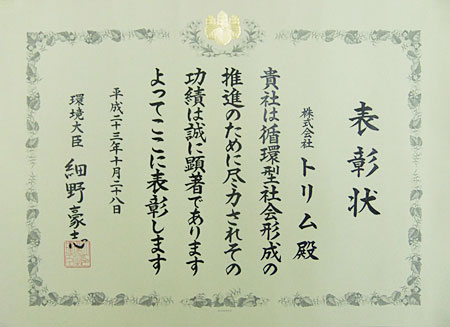 表彰状
株式会社 トリム殿
貴社は循環型社会形成の
推進のために尽力されその
功績は誠に顕著であります
よってここに表彰します
平成二十三年十月二十八日
環境大臣 細野豪志